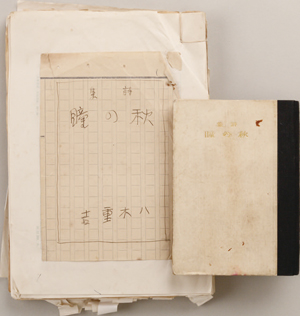 詩集
秋の瞳
八木重吉
詩集
秋の瞳